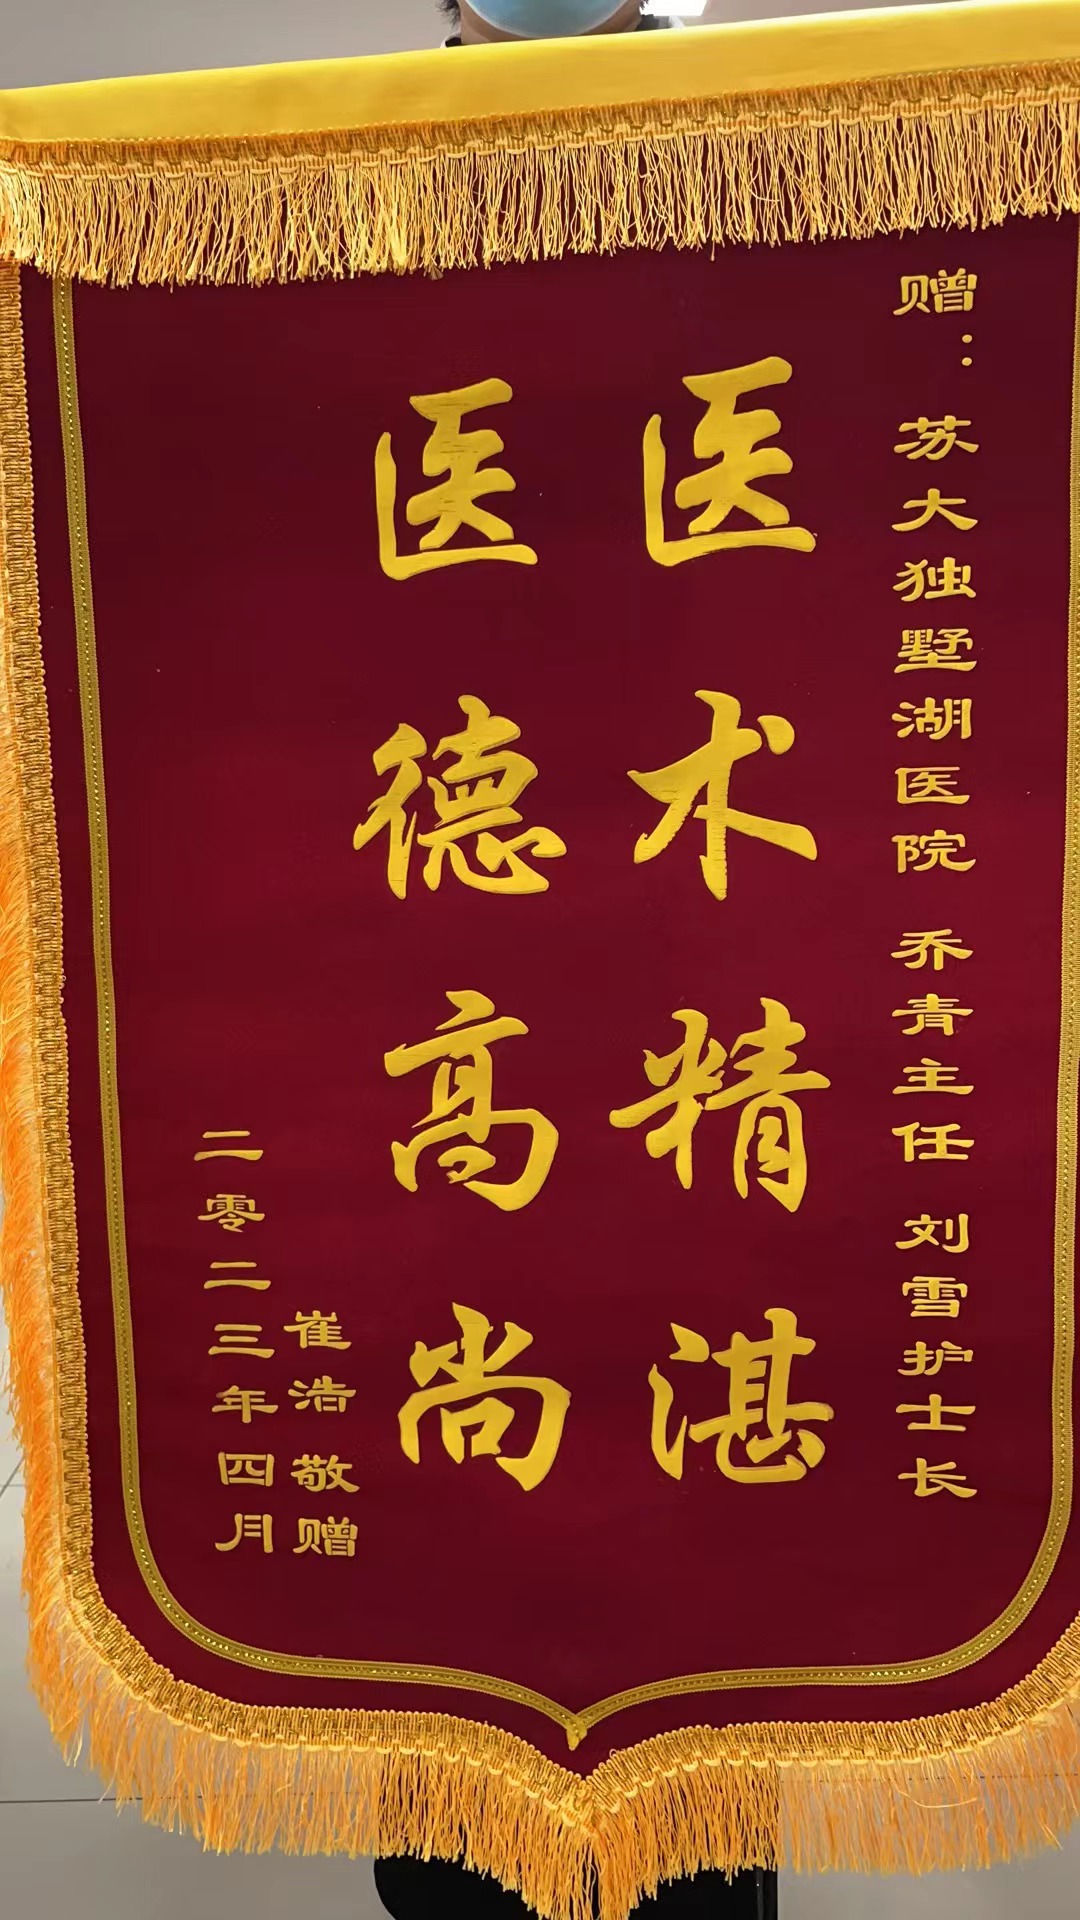 赠：苏大独墅湖医院 乔青主任 刘雪护士长
医术精湛
医德高尚
崔浩敬赠
二零二三年四月